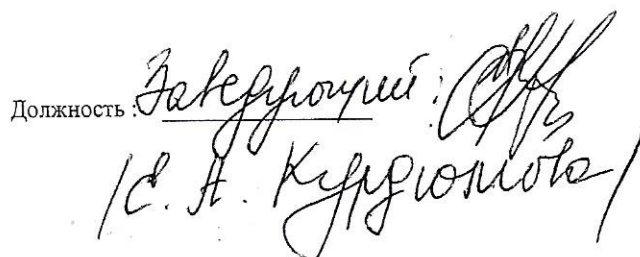 Должность: Заведующий:
/Е. А. Курдюмова/